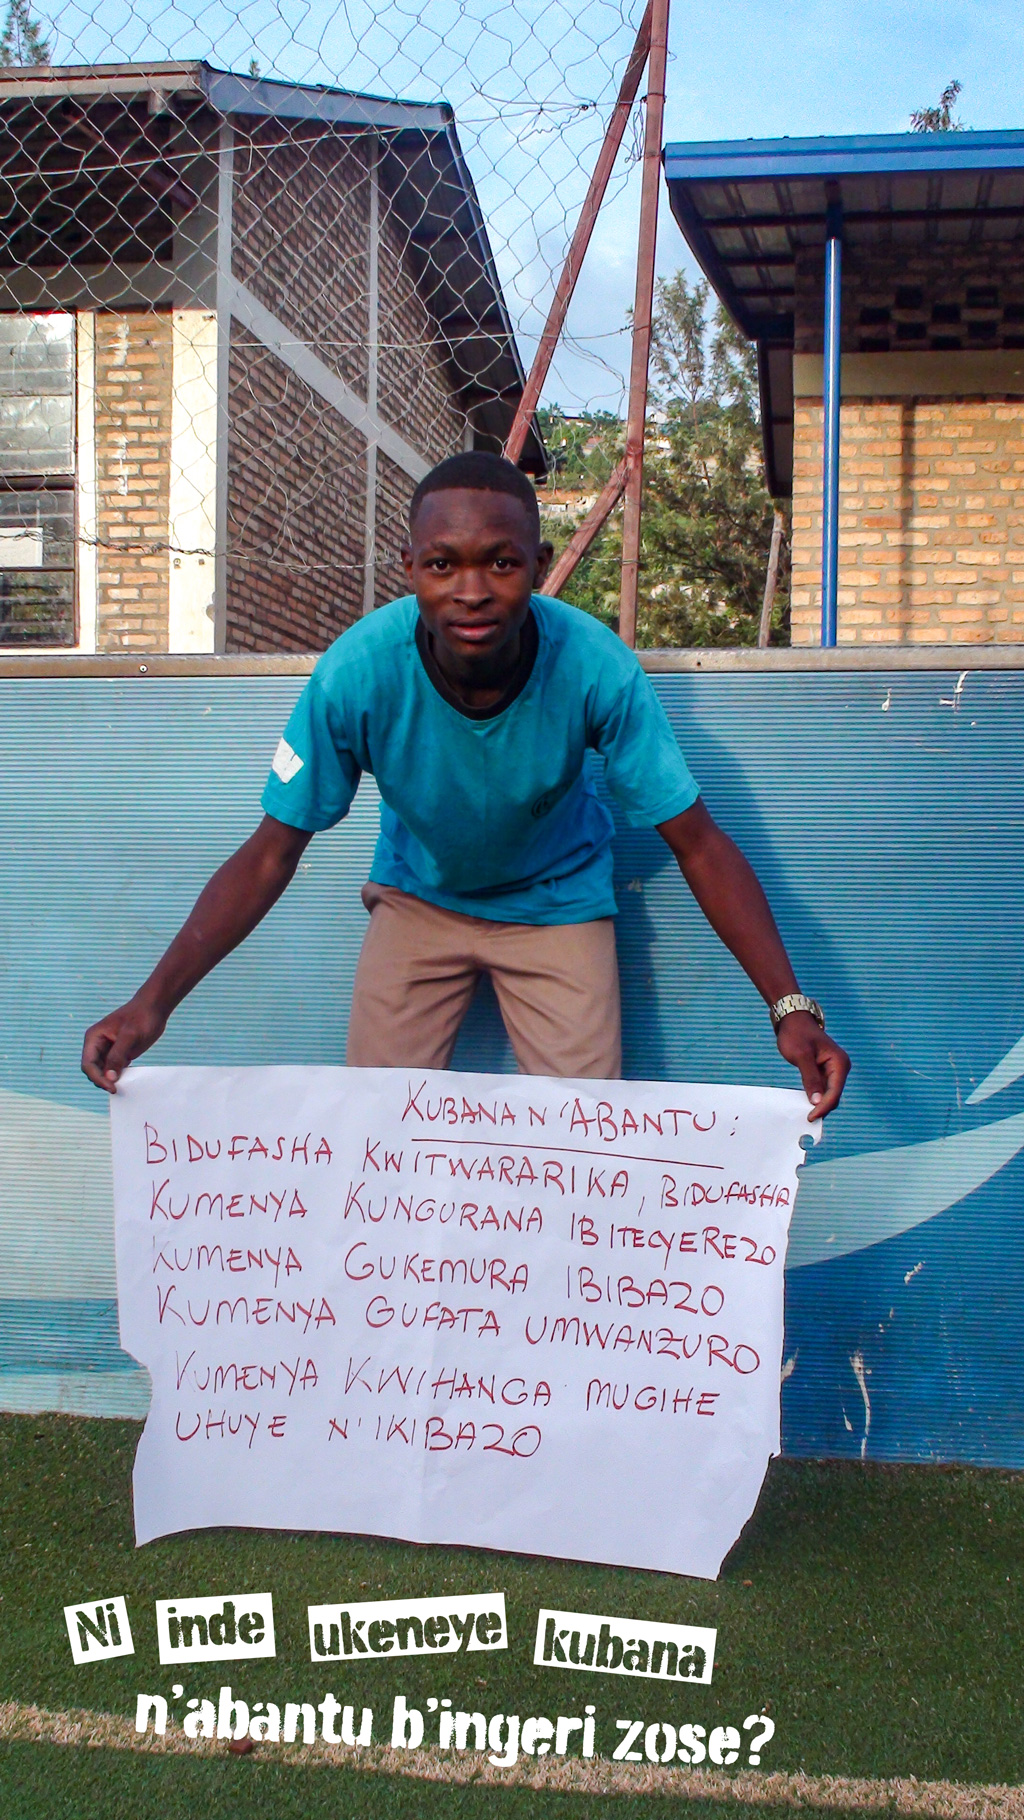 KUBANA N'ABANTU:
BIDUFASHA KWITWARARIKA, BIDUFASHA
KUMENYA KUNGURANA IBITECYEREZO
KUMENYA GUKEMURA IBIBAZO
KUMENYA GUFATA UMWANZURO
KUMENYA KWIHANGA MUGIHE
UHUYE N'IKIBAZO
Ni inde ukeneye kubana
n'abantu b'ingeri zose?